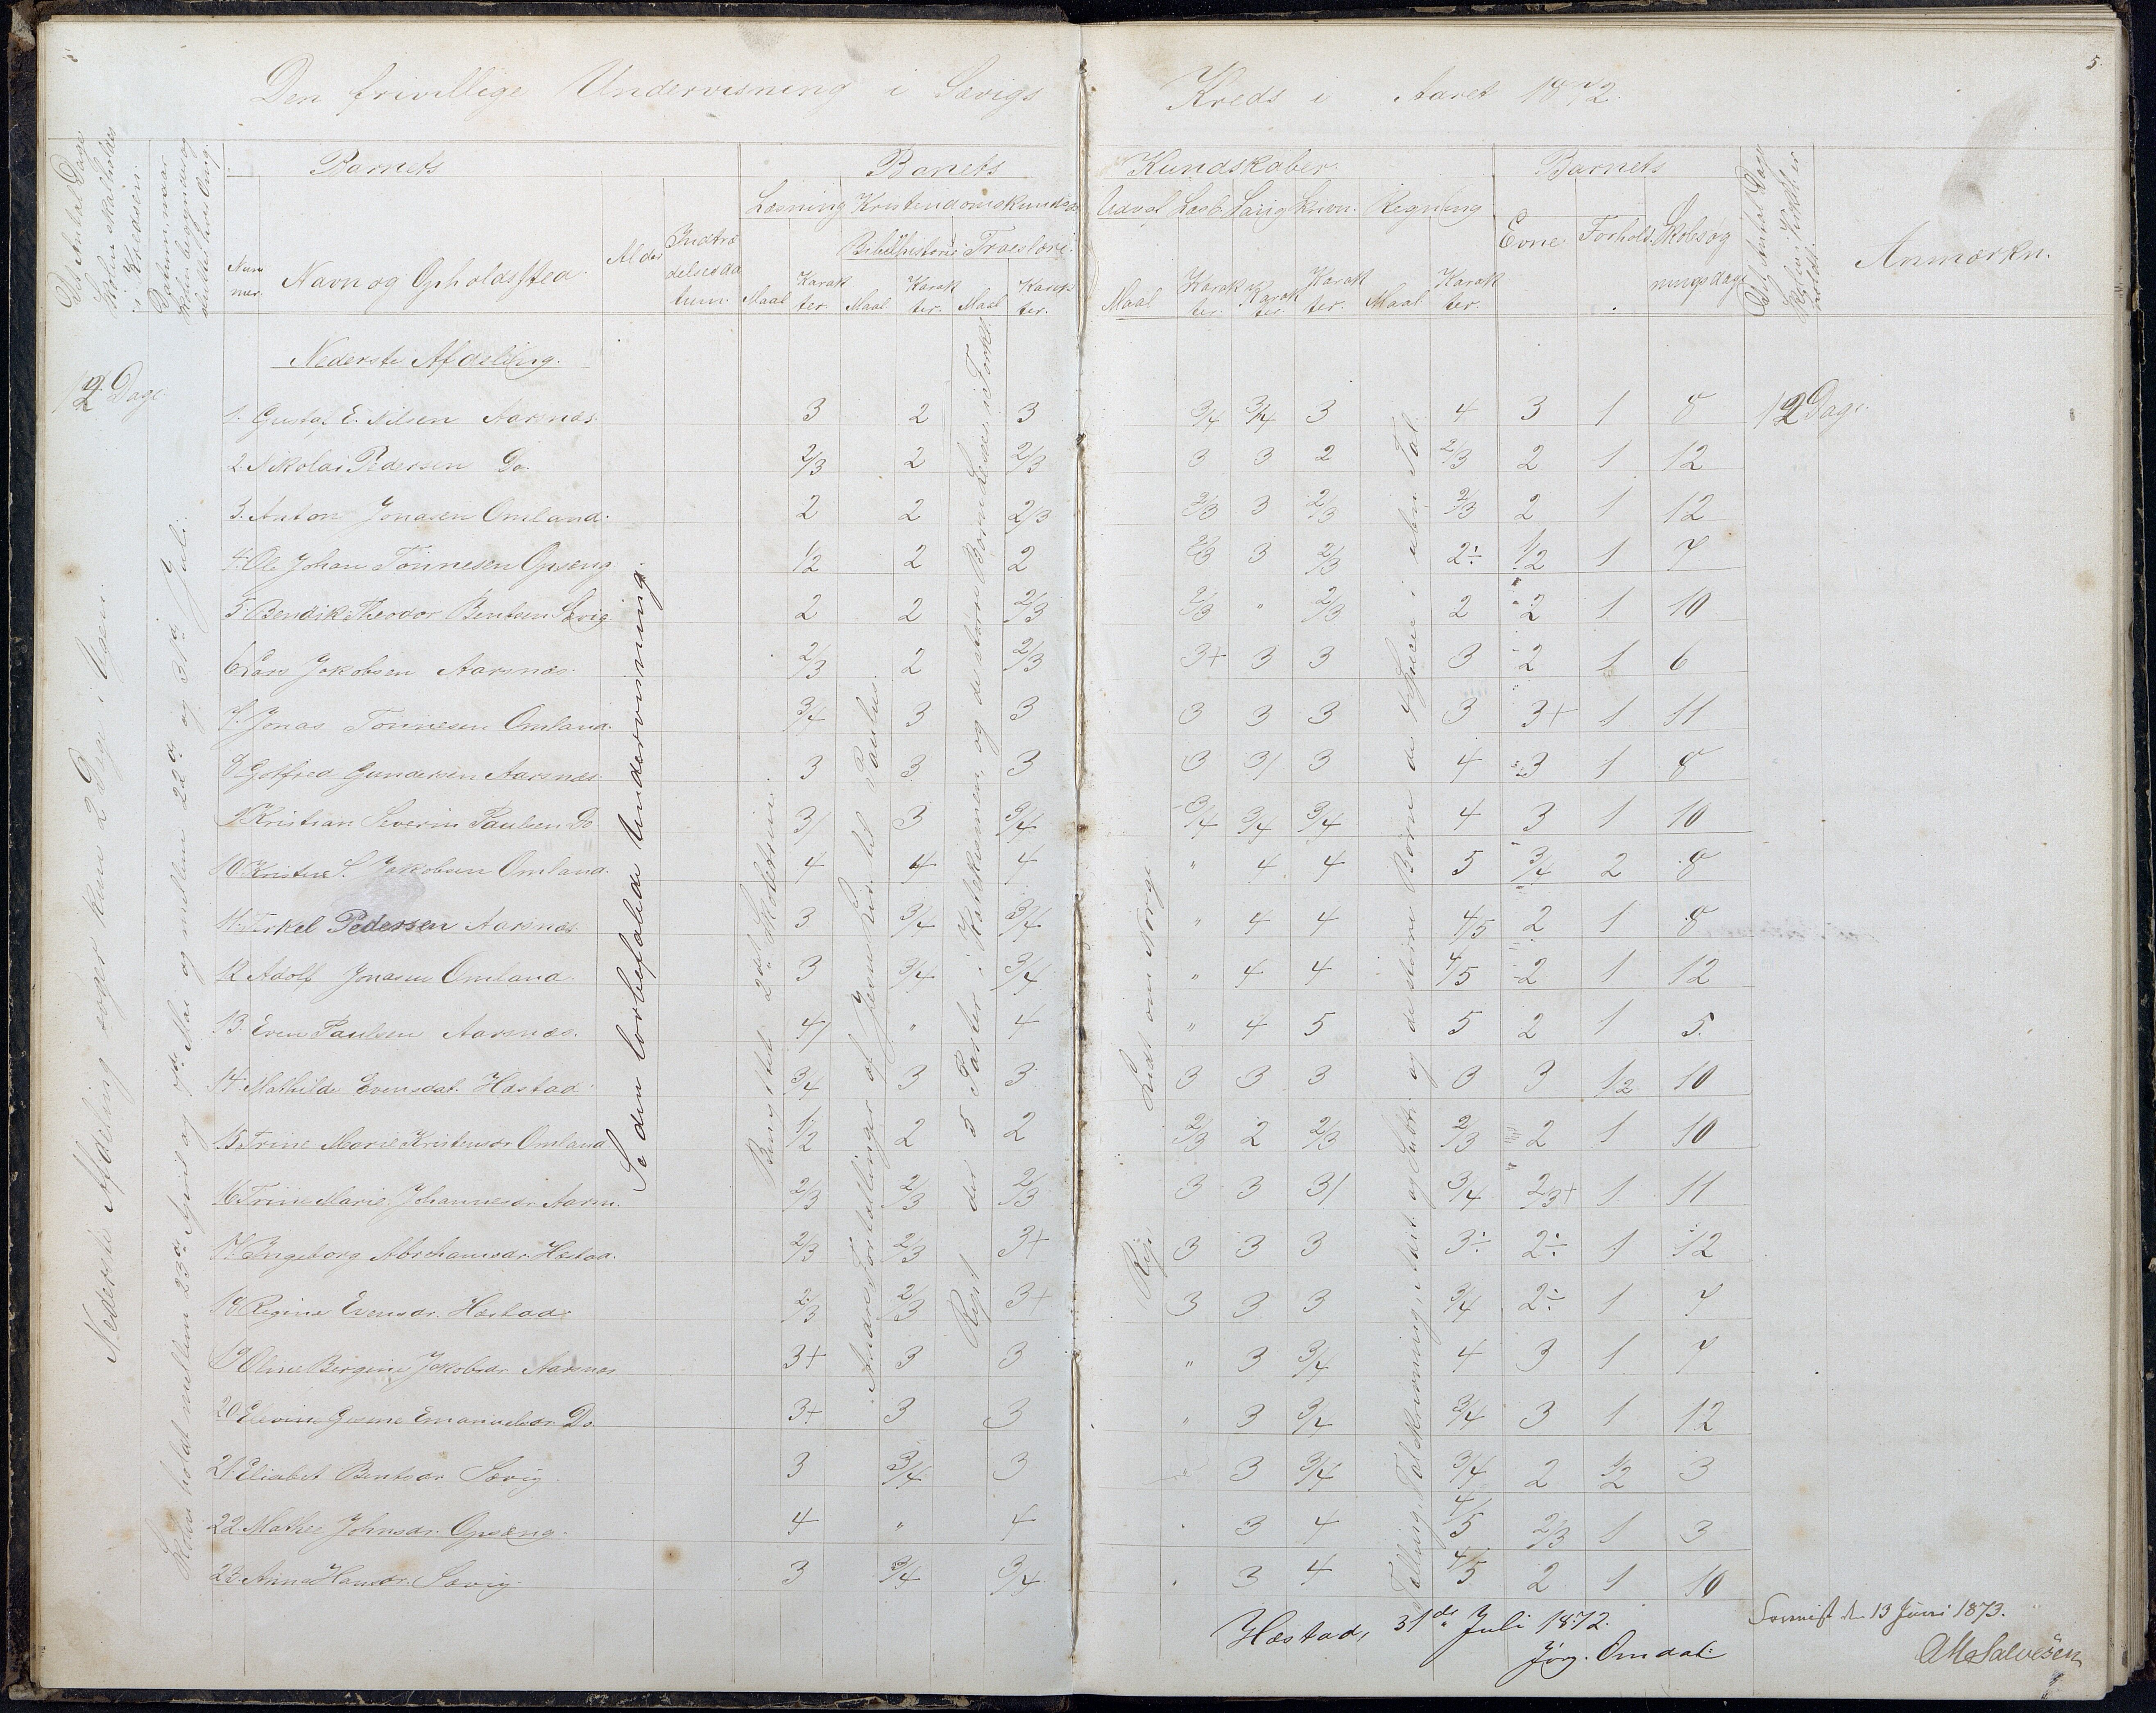 5.
Den frivillige Undervisning i Sævigs Kreds i Aaret 1872.
Det Antal Dage Skolen skal holdes i Kredsen.
Datum naar Skolen begynder og
Barnets
Barnets Kundskaber.
Barnets
Det Antal Dage Skolen i Virkl. er holdt.
Anmærkn.
Læsning Kristendomskundsk.
Udv. af Læseb. Sang Skrivn. Regning
Num mer. Navn og Opholdssted. Alder Indtrædelsesdatum.
Bibelhistorie Troeslære.
Evne Forhold. Skolesøgningsdage
Maal Karakter. Maal Karakter. Maal Karakter.
Maal Karakter. Karakter Karakter. Maal Karakter.
Nederste Afdeling.
12 Dage
1. Gustaf E. Nilsen Aarsnæs. 3 2 3 3/4 3/4 3 4 3 1 8 12 Dage.
2. Nikolai Pedersen Do. 2/3 2 2/3 3 3 2 2/3 2 1 12
3. Anton Jonasen Omland. 2 2 2/3 2/3 3 2/3 2/3 2 1 12
4. Ole Johan Tønnesen Opseng 1/2 2 2 2/3 3 2/3 2÷ 1/2 1 7
5. Bendik Theodor Bentsen Sævig 2 2 2/3 2/3 " 2/3 2 2 1 10
6 Lars Jakobsen Aarsnæs. 2/3 2 2/3 3+ 3 3 3 2 1 6
7. Jonas Tønnesen Omland. 3/4 3 3 3 3 3 3 3+ 1 11
8 Gotfred Gundersen Aarsnæs. 3 3 3 3 3/ 3 4 3 1 8
9 Kristian Severin Paulsen Do 3/ 3 3/4 3/4 3/4 3/4 4 3 1 10
10 Kristine S. Jakobsen Omland. 4 4 4 " 4 4 5 3/4 2 8
11. Terkel Pedersen Aarsnæs. 3 3/4 3/4 " 4 4 4/5 2 1 8
12 Adolf Jonasen Omland. 3 3/4 3/4 " 4 4 4/5 2 1 12
13. Even Paulsen Aarsnæs. 4/ " 4 " 4 5 5 2 1 5.
14. Mathilde Evensdat. Hæstad 3/4 3 3 3 3 3 3 3 1/2 10
15 Trine Marie Kristensdr Omland 1/2 2 2 2/3 2 2/3 2/3 2 1 10
16 Trine Marie Johannesdr. Aarsn. 2/3 2/3 2/3 3 3 3/ 3/4 2/3+ 1 11
17 Ingeborg Abrehamsdr. Hæstad. 2/3 2/3 3+ 3 3 3 3÷ 2÷ 1 12
18 Regine Evensdr. Hæstad. 2/3 2/3 3+ 3 3 3 3/4 2÷ 1 7
19 Oline Bergine Jakobsdr Aarsnæs 3+ 3 3 " 3 3/4 4 3 1 7
20 Elevine Gusine Emanuelsdr. Do 3+ 3 3 " 3 3/4 3/4 3 1 12
21. Elisabet Bentsdr Sævig. 3 3/4 3 3 3/4 3/4 2 1/2 3
22. Mathee Johnsdr. Opseng. 4 " 4 3 4 4/5 2/3 1 3
23. Anna Hansdr. Sævig. 3 3/4 3/4 3 4 4/5 2 1 10
Nederste Afdeling søger kun 2 Dage i Ugen.
Skolen holdt mellem 23de April og 7de Mai og mellem 22de og 31te Juli.
Se den lovbefalede Undervisning.
2det Skoletrin.
Andre Fortællinger af Jesu Liv til Paulus.
Rept. der 5 Parter i Katekismen, og de større Børn
Rep. Lidt om Norge.
Tælling, Talskrivning, Addit. og Subtr. og de større Børn de 4 Species i ubn. Tal.
Hæstad, 31de Juli 1872.
Jørg. Omdal.
13 Juni 1873.
Salvesen